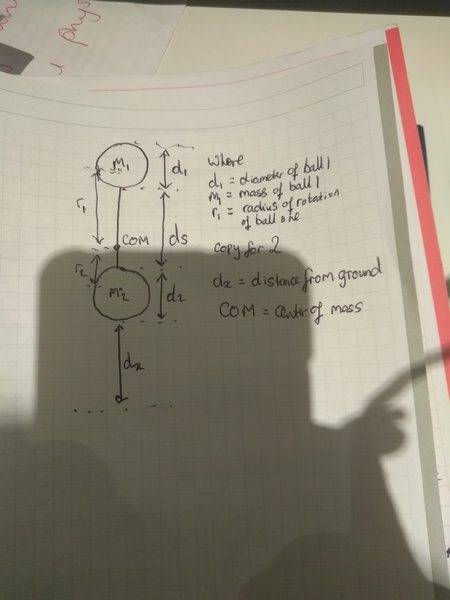 phys
M1
d1
r1
COM
ds
r2
M2
d2
dx
where
d1 = diameter of ball 1
M1 = mass of ball 1
r1 = radius of rotation
of ball one
copy for 2
dx = distance from ground
COM = center of mass